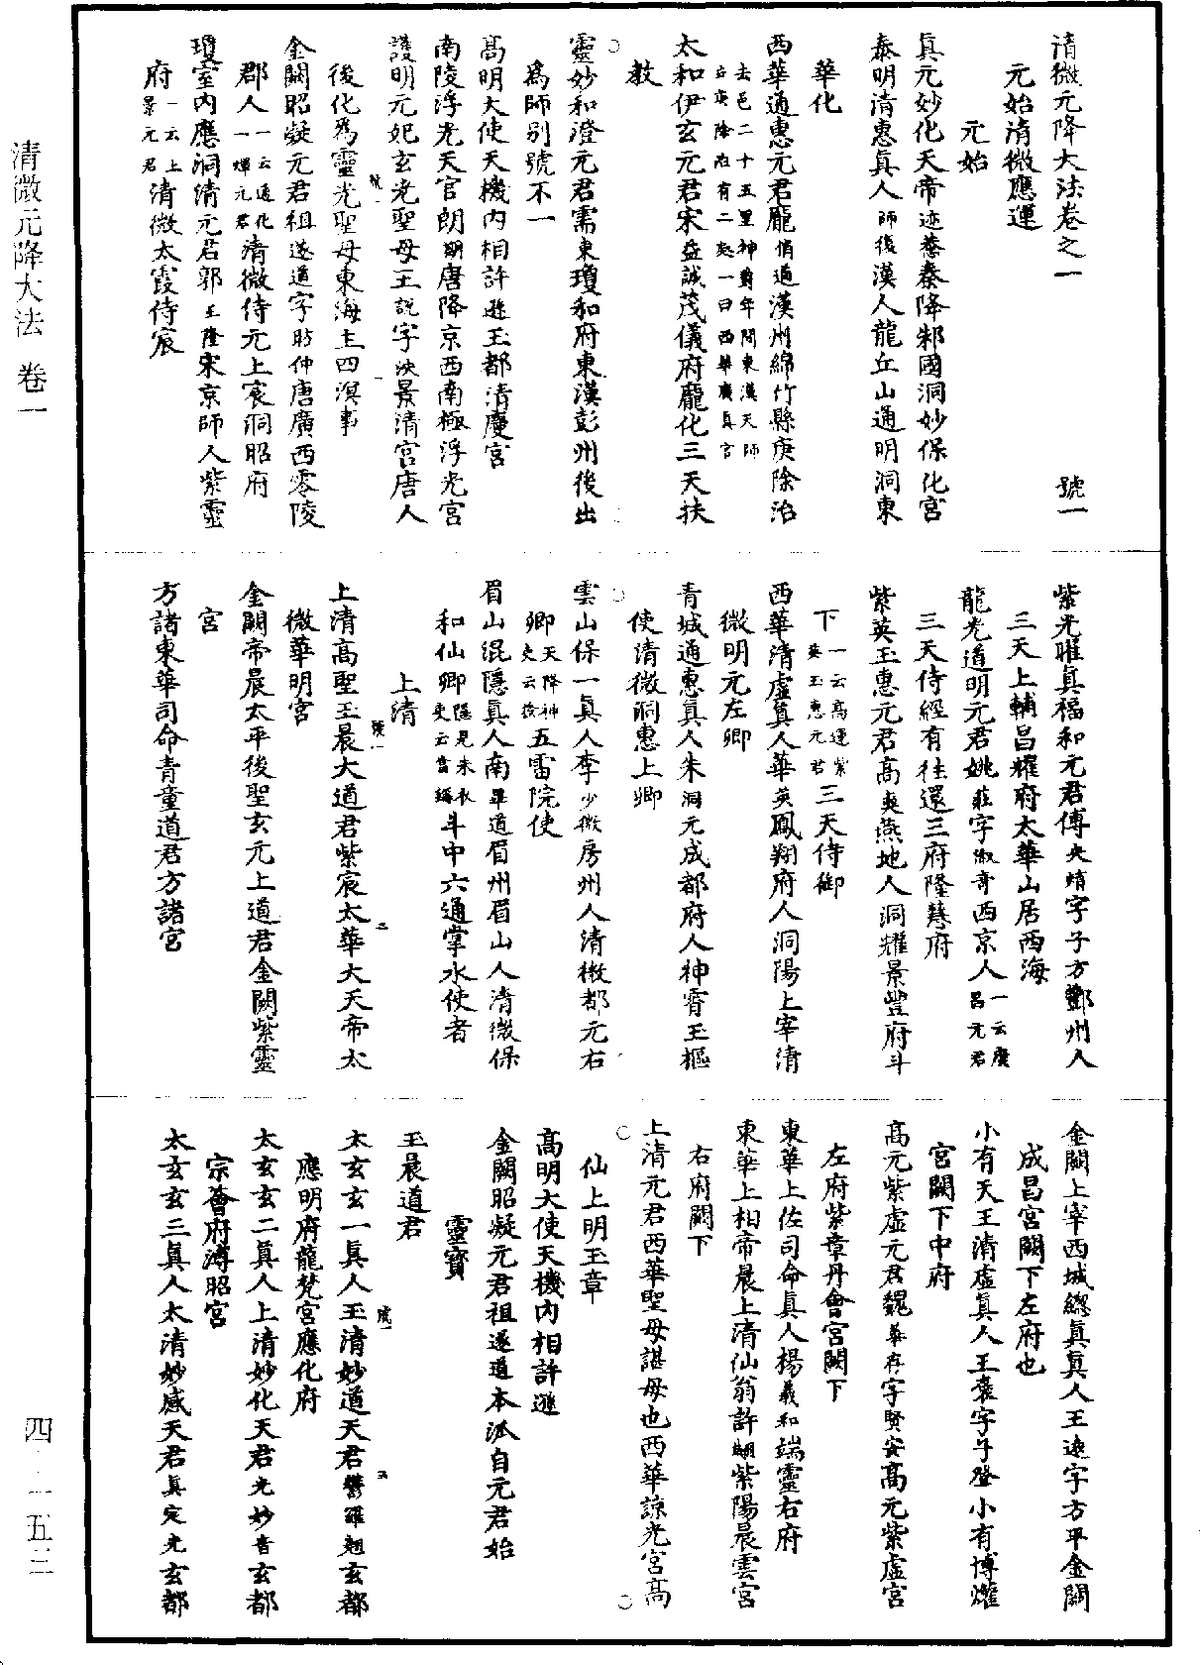 清微元降大法卷之一　號一
元始清微應運
元始
真元妙化天帝迹著秦降邾國洞妙保化宮
泰明清惠真人師後漢人龍丘山通明洞東
華化
西華通惠元君龐俏道漢州綿竹縣庚除治
去邑二十五里神爵年間東漢天師
占庚除治有二处一曰西華廣真官
太和伊玄元君宋益誠茂儀府龐化三天扶
教
靈妙和澄元君需東瓊和府東漢彭州後出
為師別號不一
高明大使天機內相許遜玉都清慶宮
南陵浮光天官朗期唐降京西南極浮光宮
護明元妃玄光聖母王說字泱景清宮唐人
號一
後化為靈光聖母東海主四溟事
金闕昭凝元君祖遂道字昉仲唐廣西零陵
郡人一云通化一輝元君清微侍元上宸洞昭府
瓊室內應洞清元君郭玉隆宋京師人紫靈
府一云上景元君清微太霞侍宸
紫光曜真福和元君傅央焴字子方鄷州人
三天上輔昌耀府太華山居西海
龍光道明元君姚莊字淑音西京人一云廣昌元君
三天侍經有往還三府隆慧府
紫英玉惠元君高奭燕地人洞耀景豐府斗
下一云高運紫英玉惠元君三天侍御
西華清虛真人華英鳳翔府人洞陽上宰清
微明元左卿
青城通惠真人朱洞元成都府人神霄玉樞
使清微洞惠上卿
雲山保一真人李少微房州人清微都元右
卿天降神吏云後五雷院使
眉山混隱真人南畢道眉州眉山人清微保
和仙卿隱晃朱衣吏云當稱斗中六通掌水使者
上清
號一
上清高聖玉晨大道君紫宸太華大天帝太
二
微華明宮
金闕帝晨太平後聖玄元上道君金闕紫靈
宮
方諸東華司命青童道君方諸宮
金闕上宰西城總真真人王遠字方平金闕
成昌宮闕下左府也
小有天王清虛真人王褒字子登小有博爟
宮闕下中府
高元紫虛元君魏華存字賢安高元紫虛宮
左府紫章丹會宮闕下
東華上佐司命真人楊羲和端靈右府
東華上相帝晨上清仙翁許翽紫陽晨雲宮
右府闕下
上清元君西華聖母諶母也西華諒光宮高
仙上明玉章
高明大使天機內相許遜
金闕昭凝元君祖遂道本派自元君始
靈寶
玉晨道君
號一
太玄玄一真人玉清妙道天君鬱羅翹玄都
三
應明府龍梵宮應化府
太玄玄二真人上清妙化天君光妙音玄都
宗薈府溥昭宮
太玄玄三真人太清妙感天君真定光玄都
清微元降大法　卷一
四·二五三